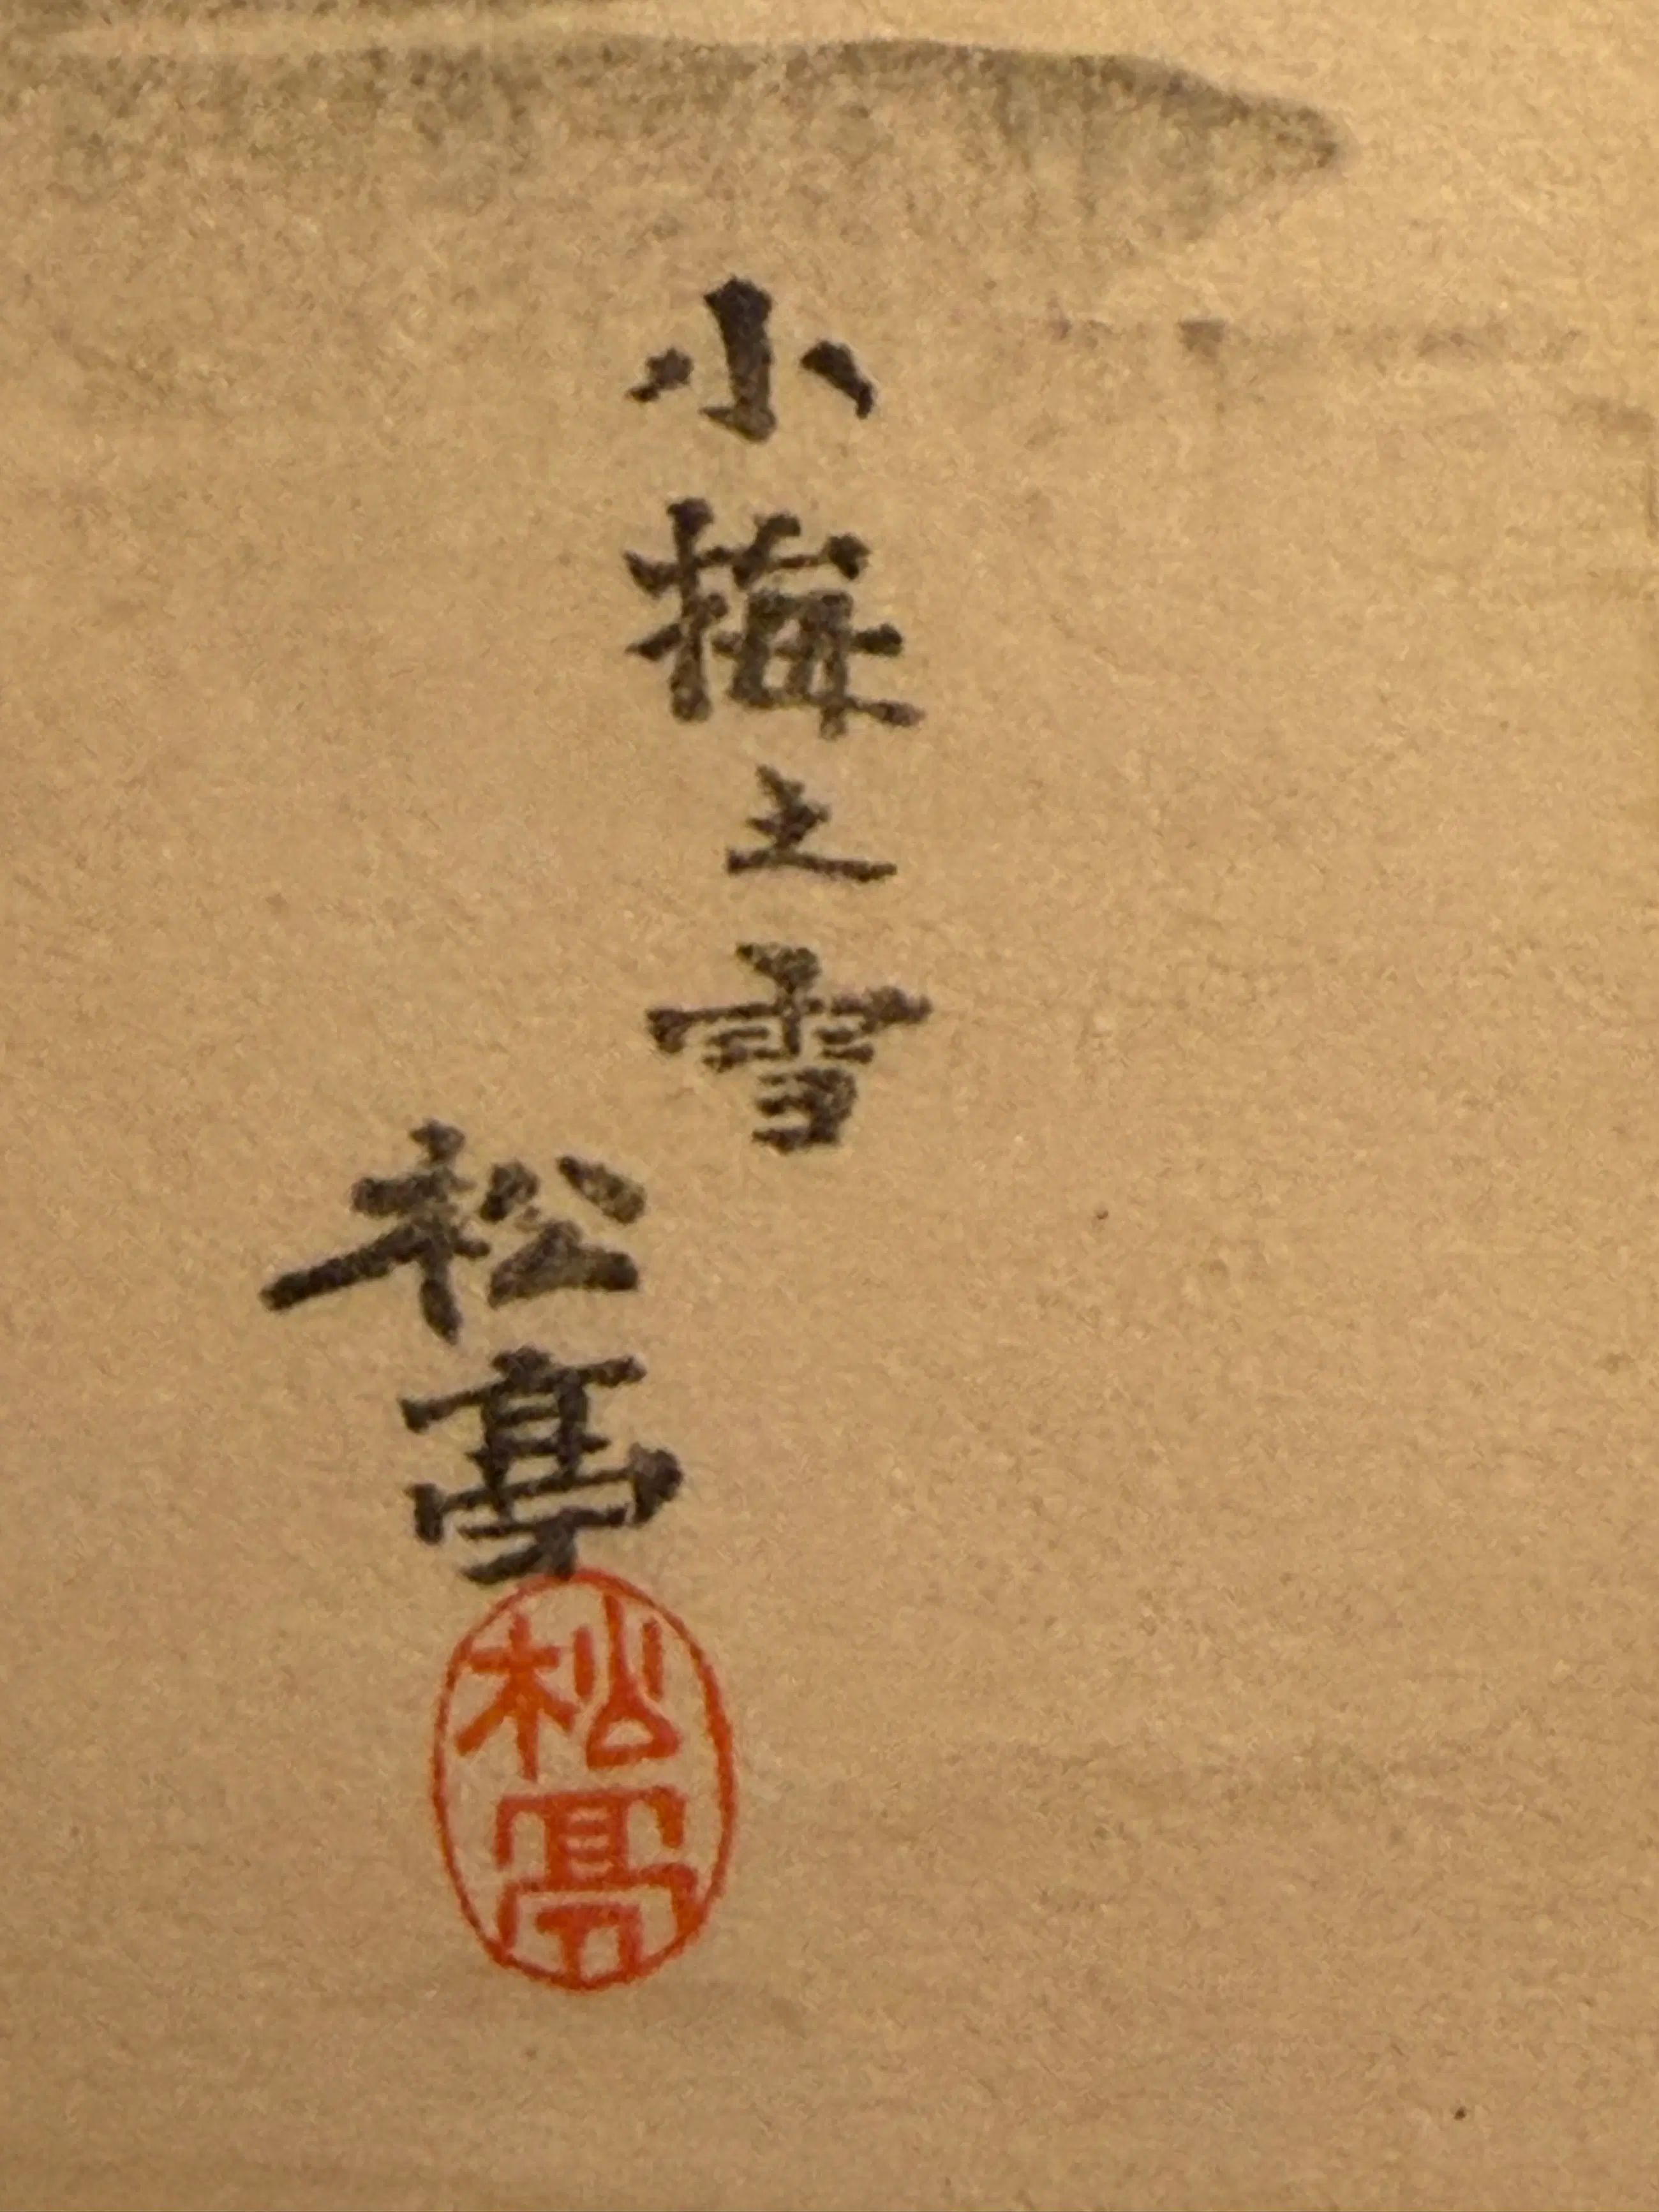 小梅之雪
松亭
松亭